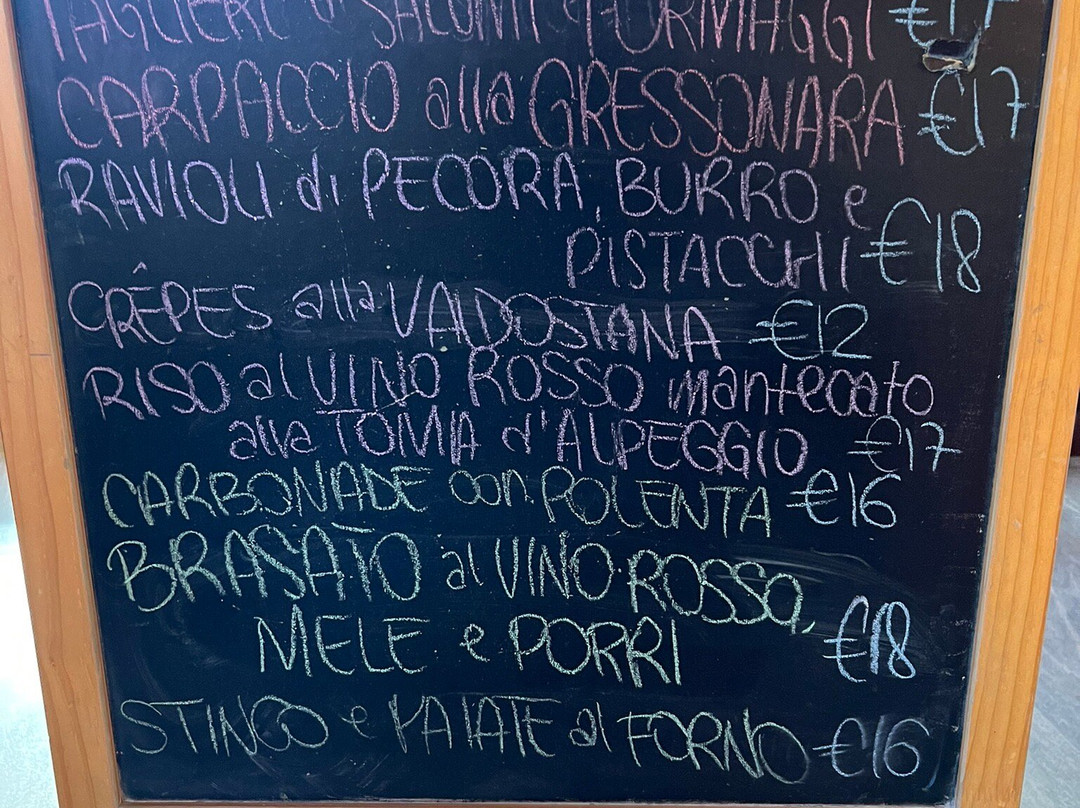 TAGLIERE di SALUMI e FORMAGGI €17
CARPACCIO alla GRESSONARA €17
RAVIOLI di PECORA, BURRO e
PISTACCHI €18
CRÊPES alla VALDOSTANA €12
RISO al VINO ROSSO mantecato
alla TOMA d'ALPEGGIO €17
CARBONADE con POLENTA €16
BRASATO al VINO ROSSO,
MELE e PORRI €18
STINCO e PATATE al FORNO €16